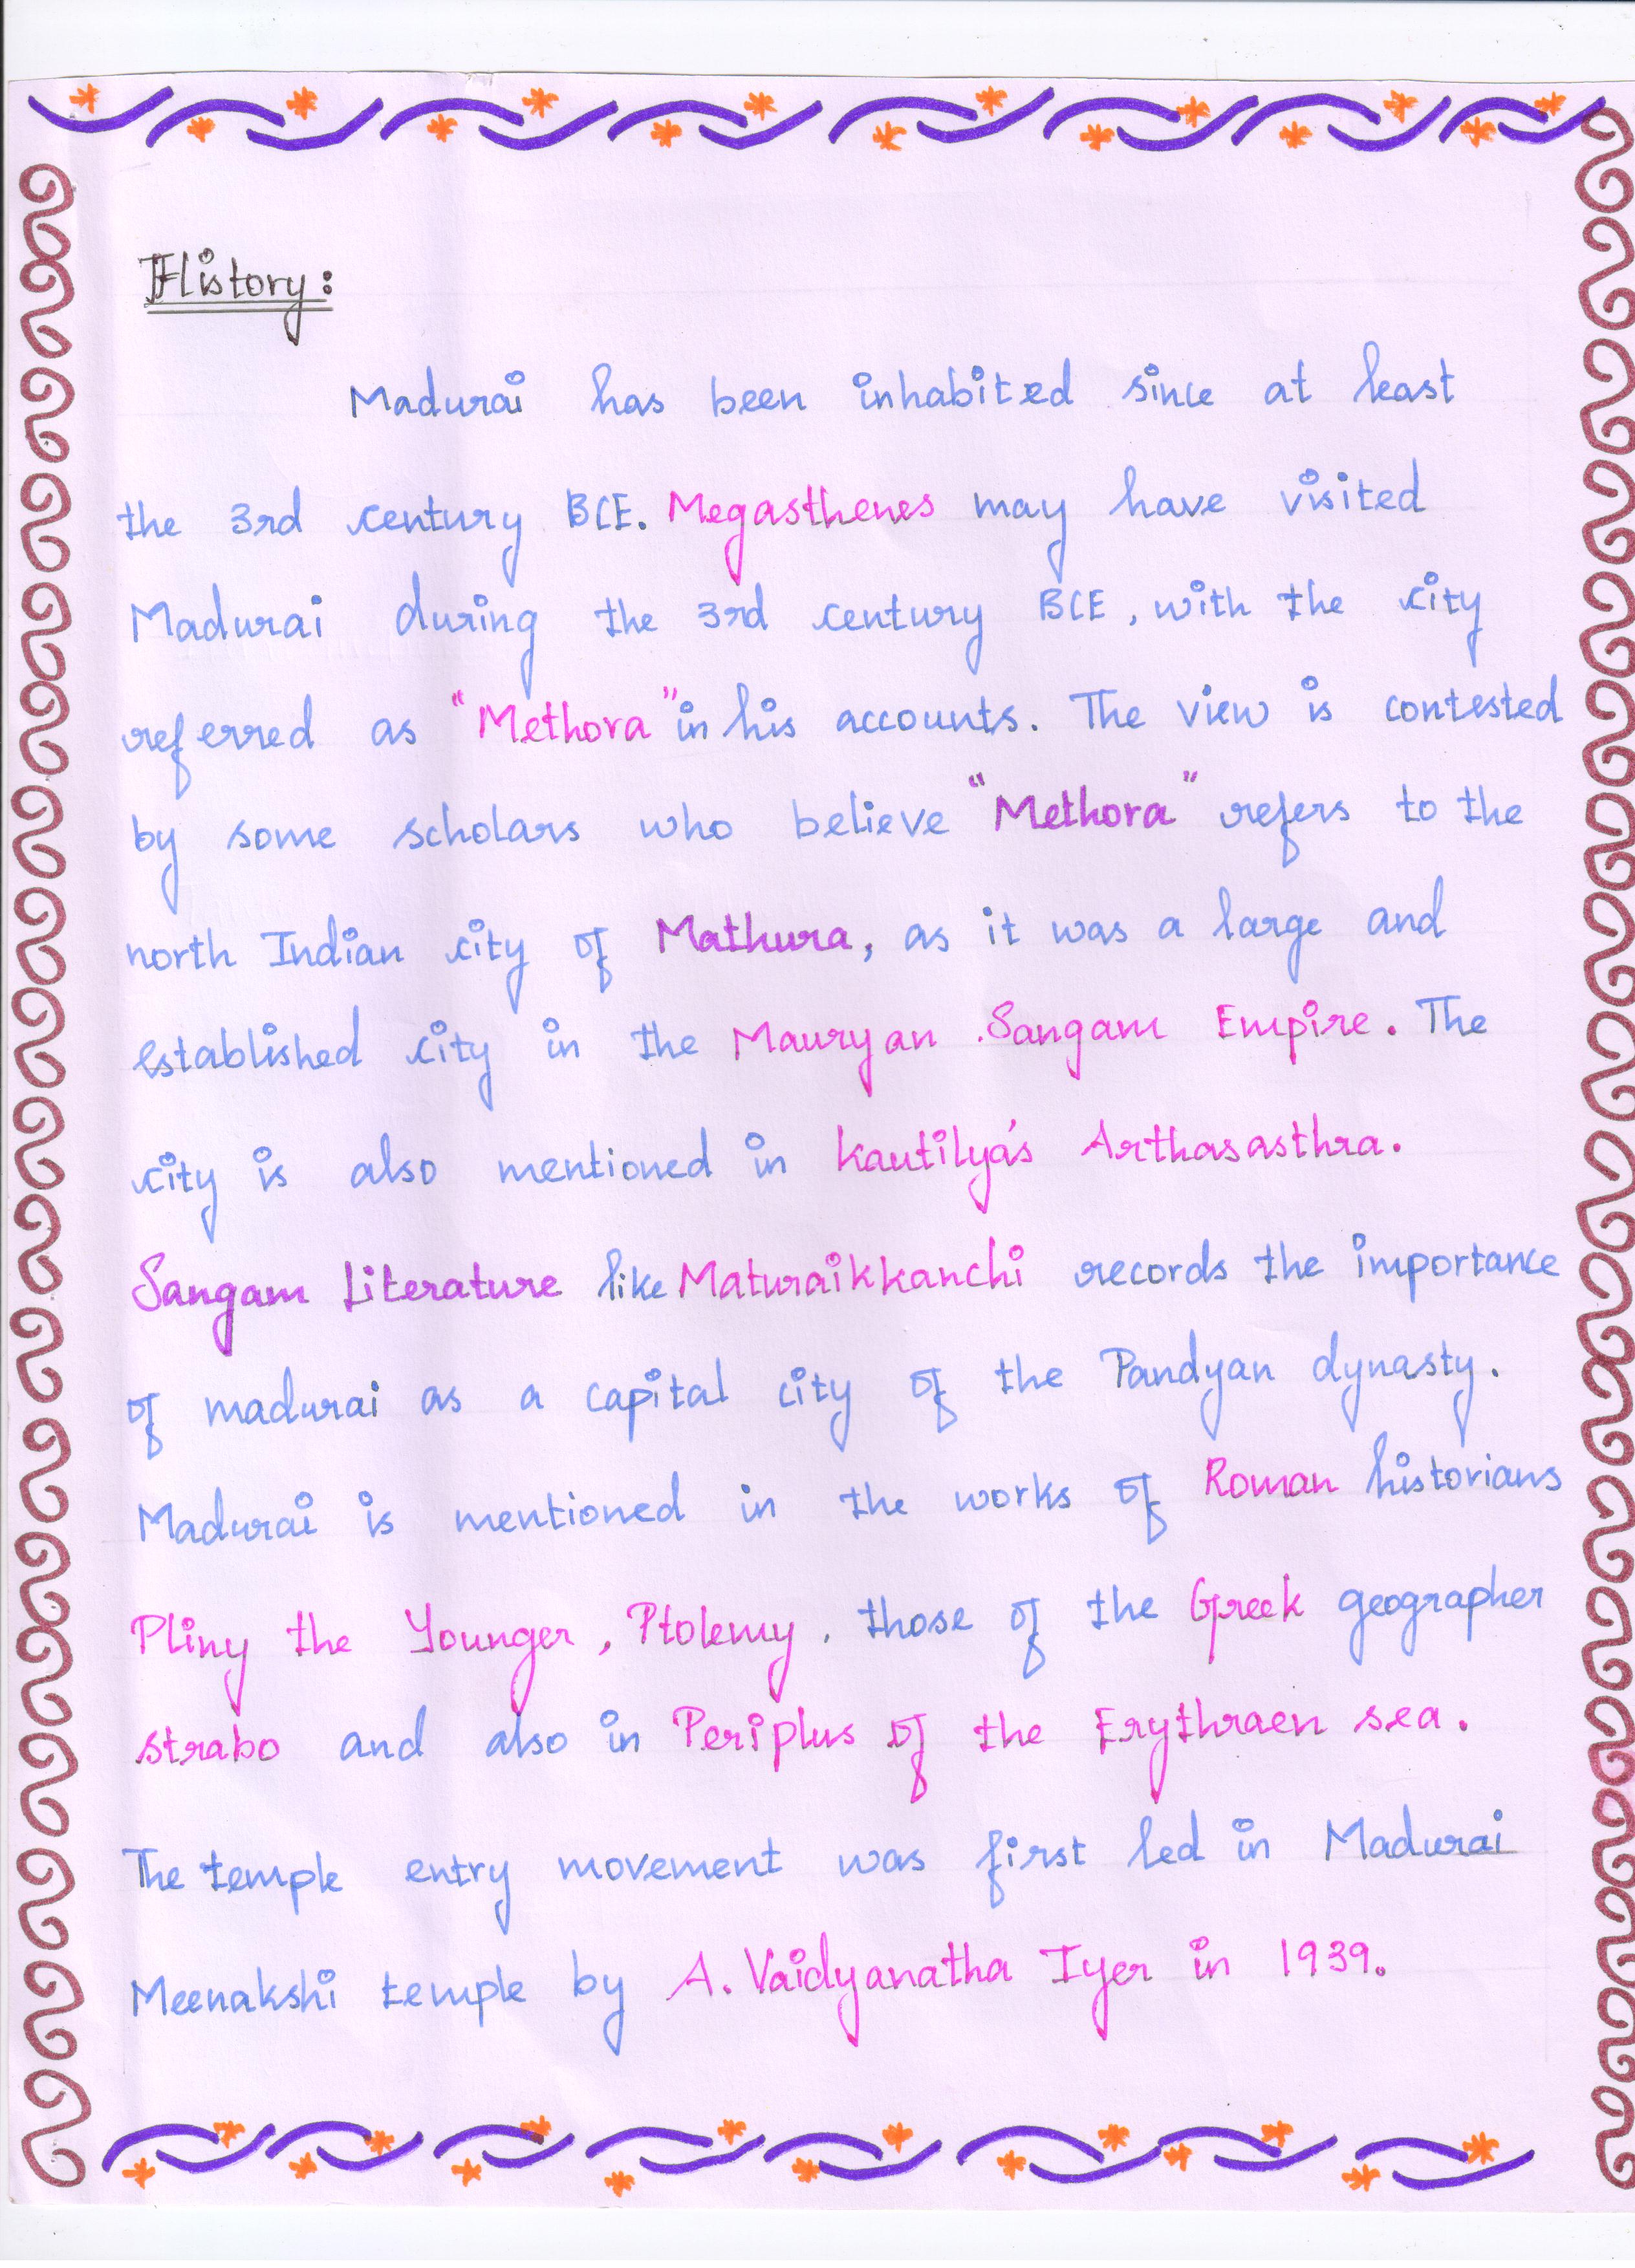 History:
Madurai has been inhabited since at least
the 3rd century BCE. Megasthenes may have visited
Madurai during the 3rd century BCE, with the city
referred as "Methora" in his accounts. The view is contested
by some scholars who believe "Methora" refers to the
north Indian city of Mathura, as it was a large and
established city in the Mauryan Sangam Empire. The
city is also mentioned in Kautilya's Arthasasthra.
Sangam Literature like Maturaikkanchi records the importance
of madurai as a capital city of the Pandyan dynasty.
Madurai is mentioned in the works of Roman historians
Pliny the Younger, Ptolemy, those of the Greek geographer
strabo and also in Periplus of the Erythraen sea.
The temple entry movement was first led in Madurai
Meenakshi temple by A. Vaidyanatha Iyer in 1939.